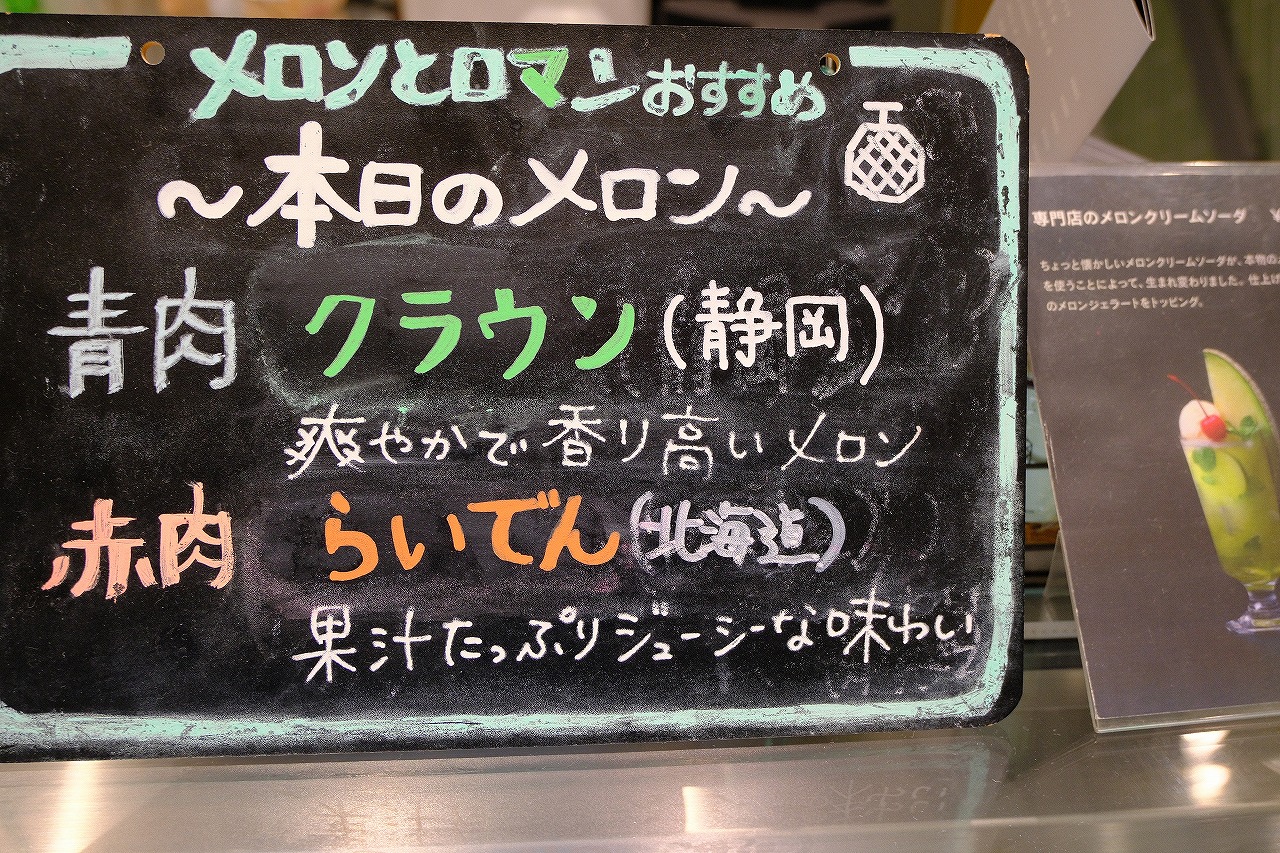 メロンとロマンおすすめ
〜本日のメロン〜
青肉 クラウン(静岡)
爽やかで香り高いメロン
赤肉 らいでん(北海道)
果汁たっぷりジューシーな味わい
専門店のメロンクリームソーダ ¥
ちょっと懐かしいメロンクリームソーダが、本物の
を使うことによって、生まれ変わりました。仕上げ
のメロンジェラートをトッピング。